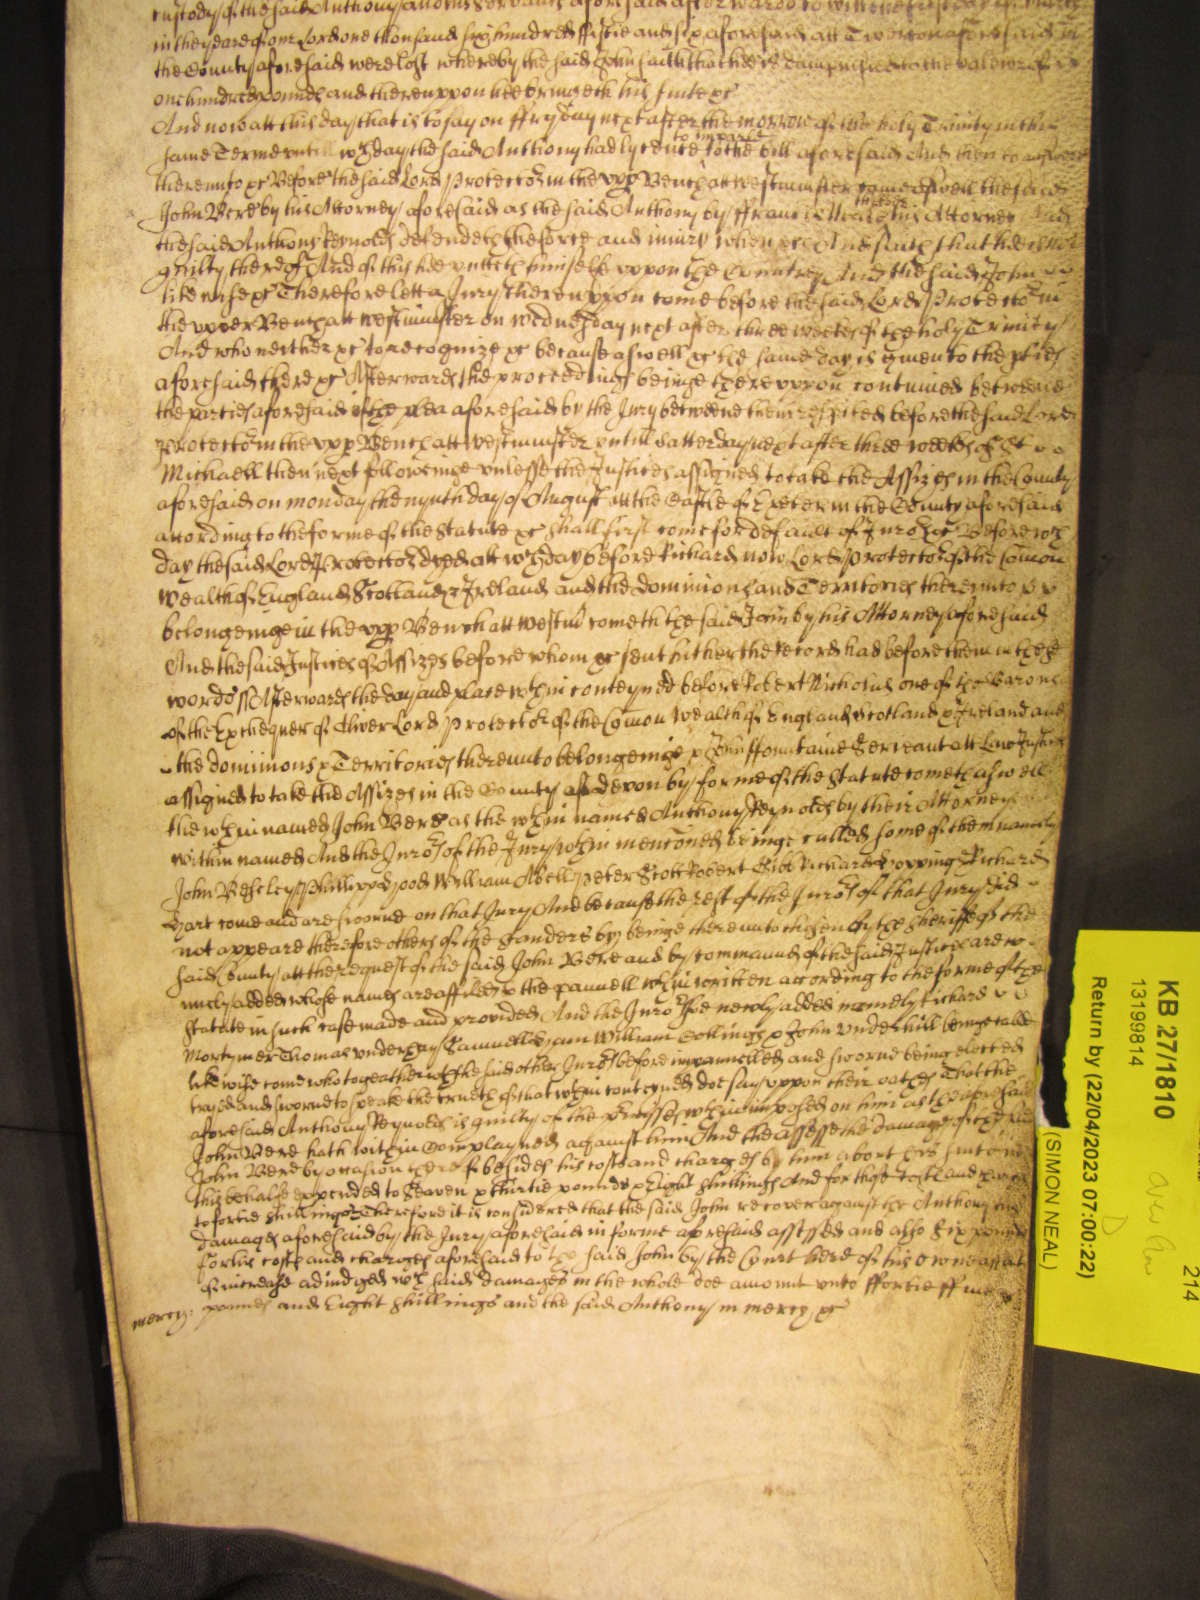 custody of the said Anthony and his servants aforesaid afterwards to witt the first day of
in the yeare of our Lord one thousand six hundred fiftie and six aforesaid att Twerton aforesaid in
the County aforesaid were lost whereby the said John saith that hee is dampnified to the valewe of
one hundred pounds and thereuppon hee bringeth his suite &c
And now att this day that is to say on ffryday next after the morrow of the holy Trinity in this
same Terme untill wch day the said Anthony had lycence to imparle to the bill aforesaid And then to answere
thereunto &c Before the said Lord Protector in the upp Bench att Westminster came aswell the said
John Bere by his Attorney aforesaid as the said Anthony by ffrancis his Attorney And
the said Anthony Reynolds defendeth the force and iniury when &c And saith that hee is not
guilty thereof And of this hee putteth himselfe uppon the Countrey And the said John
likewise &c Therefore lett a Jury thereuppon come before the said Lord Protector in
the upper Bench att Westminster on Wednesday next after three weekes of the holy Trinity
And who neither &c to recognize &c because aswell &c the same day is given to the pties
aforesaid there &c Afterwards the proceedings beinge thereuppon continued betweene
the parties aforesaid of the plea aforesaid by the Jury betweene them respited before the said Lord
Protector in the upp Bench att Westminster untill Satterday next after three weekes of St
Michaell then next followinge unlesse the Justices assigned to take the Assizes in the County
aforesaid on monday the nynth day of August att the Castle of Exeter in the County aforesaid
according to the forme of the Statute &c shall first come for default of Jurors &c Before wch
day the said Lord Protector dyed att wch day before Richard now Lord Protector of the Comon
wealth of England Scotland & Ireland and the dominions and Territories thereunto
belongeinge in the upp Bench att Westmr cometh the said John by his Attorney aforesaid
And the said Justices of Assizes before whom &c sent hither the record had before them in these
words ss Afterwards the day and place wthin conteyned before Robert Nicholas one of the Barons
of the Exchequer of Oliver Lord Protector of the Comon wealth of England Scotland & Ireland and
the dominions & Territories thereunto belongeinge & John ffountaine Serieant att Law Justices
assigned to take the Assizes in the County of devon by forme of the Statute cometh aswell
the wthin named John Bere as the wthin named Anthony Reynolds by their Attorneys
within named And the Jurors of the Jury wthin menconed beinge called some of them namely
John Beseley Phillipp Hood William Abell Peter Scott Robert Gibb Richard Hopping & Richard
Hart come and are sworne on that Jury And because the rest of the Jurors of that Jury did
not appeare therefore others of the standers by beinge thereunto chosen by the Sheriffe of the
said County att the request of the said John Bere and by commaund of the said Justices are
newly added whose names are affiled to the pannell wthin written according to the forme of the
Statute in such case made and provided And the Jurors soe newly added namely Richard
Mortymer Thomas Underhay Samuell William Collings & John Underhill beinge called
likewise come who togeather wth the said other Jurors before impannelled and sworne being elected
tryed and sworne to speake the trueth of that wthin conteyned doe say uppon their oathes That the
aforesaid Anthony Reynolds is guilty of the premisses wthin imposed on him as the aforesaid
John Bere hath within Complayned against him And they assesse the damages of the said
John Bere by occasion thereof besides his costs and charges by him about his suite in
this behalfe expended to Seaven & thirtie pounds & Eight shillings And for those costs and charges
to fortie shillings Therefore it is considered that the said John recover against the Anthony his
damages aforesaid by the Jury aforesaid in forme aforesaid assessed and also Six pounds
for his costs and charges aforesaid to the said John by the Court here of his owne assent
of increase adiudged wch said damages in the whole doe amount unto ffortie ffive
mercy: pounds and Eight shillings and the said Anthony in mercy &c
KB 27/1810
13199814
Return by (22/04/2023 07:00:22)
(SIMON NEAL)
214
D